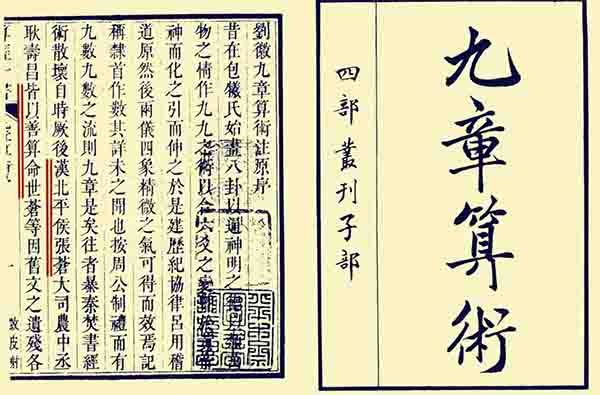 九章算術
四部叢刊子部
劉徽九章算術注原序
昔在包犧氏始畫八卦以通神明之德以類萬
物之情作九九之術以合六爻之變
神而化之引而伸之於是建歷紀協律呂用稽
道原然後兩儀四象精微之氣可得而效焉記
稱隸首作數其詳未之聞也按周公制禮而有
九數九數之流則九章是矣往者暴秦焚書經
術散壞自時厥後漢北平侯張蒼大司農中丞
耿壽昌皆以善算命世蒼等因舊文之遺殘各
一